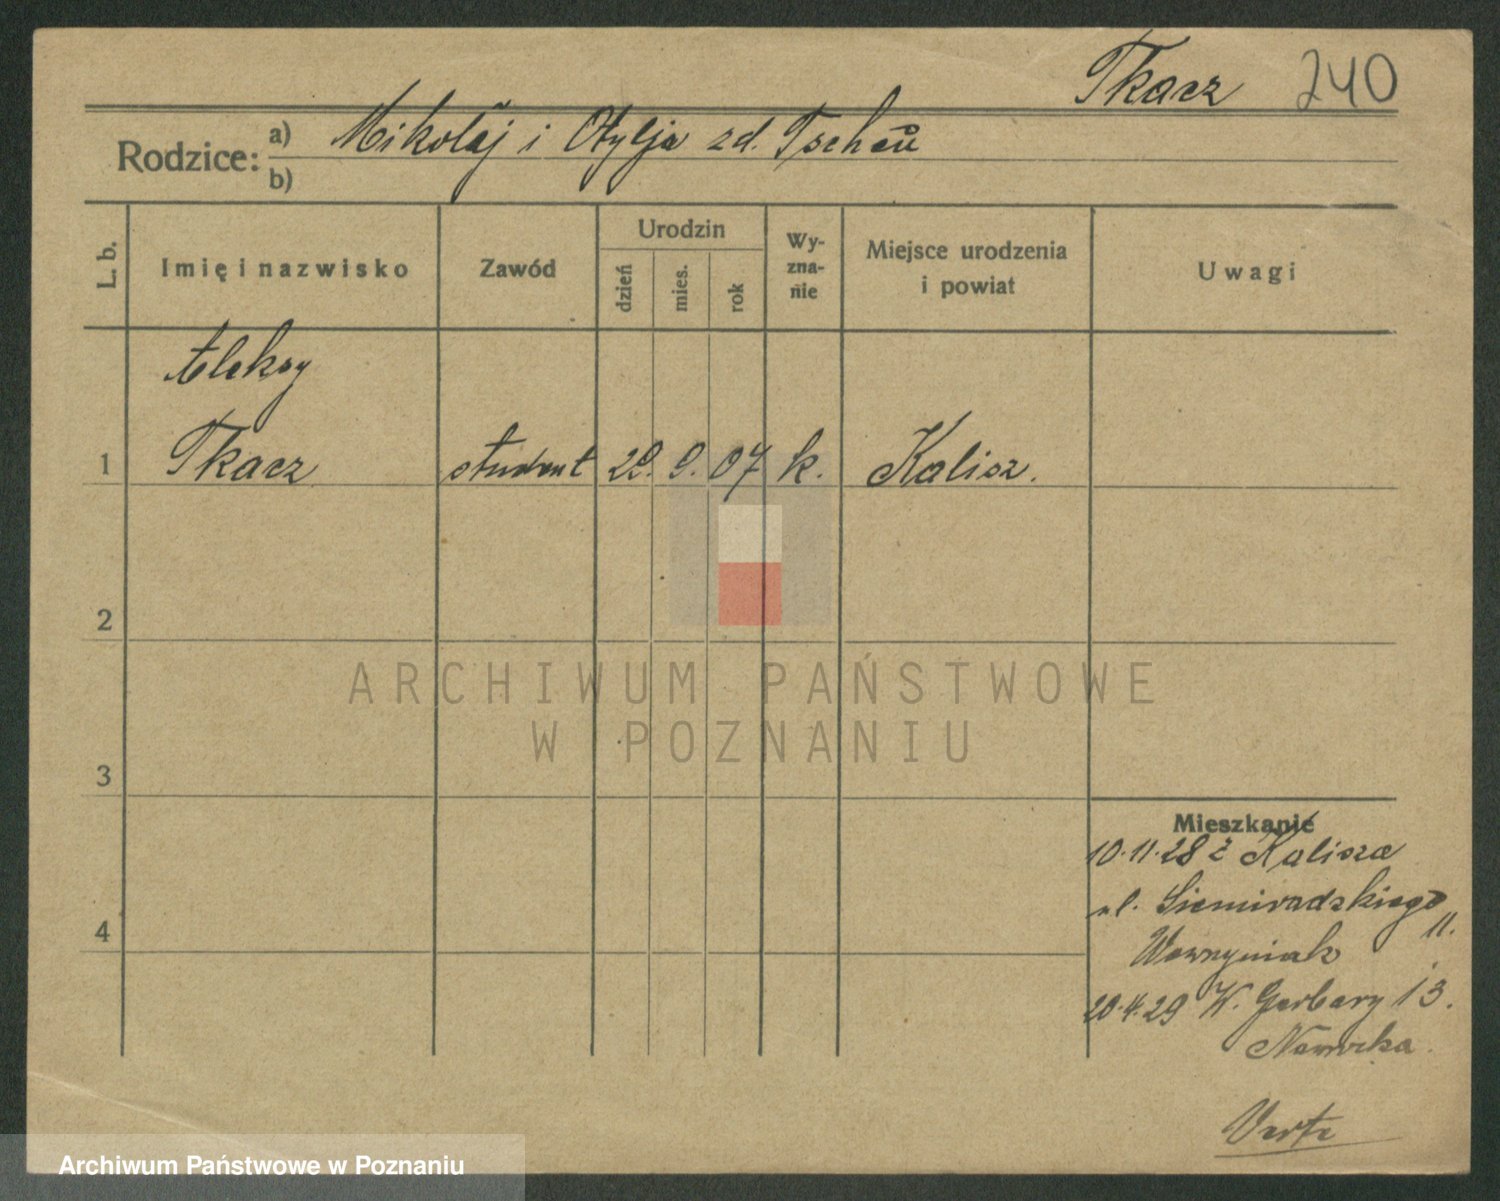 Tkacz 240
Rodzice: a) Mikołaj i Otylja zd.
b)
L. b.
Imię i nazwisko
Zawód
Urodzin
dzień
mies.
rok
Wy-
zna-
nie
Miejsce urodzenia
i powiat
Uwagi
Aleksy
1 Tkacz student 22. 9. 07 k. Kalisz.
2
3
4
ARCHIWUM PAŃSTWOWE
W POZNANIU
Mieszkanie
10.11.28 z Kalisza
ul. Siemiradzkiego
11.
Wawrzyniak
20.4.29 W. Garbary 13.
Nawrocka
Verte
Archiwum Państwowe w Poznaniu